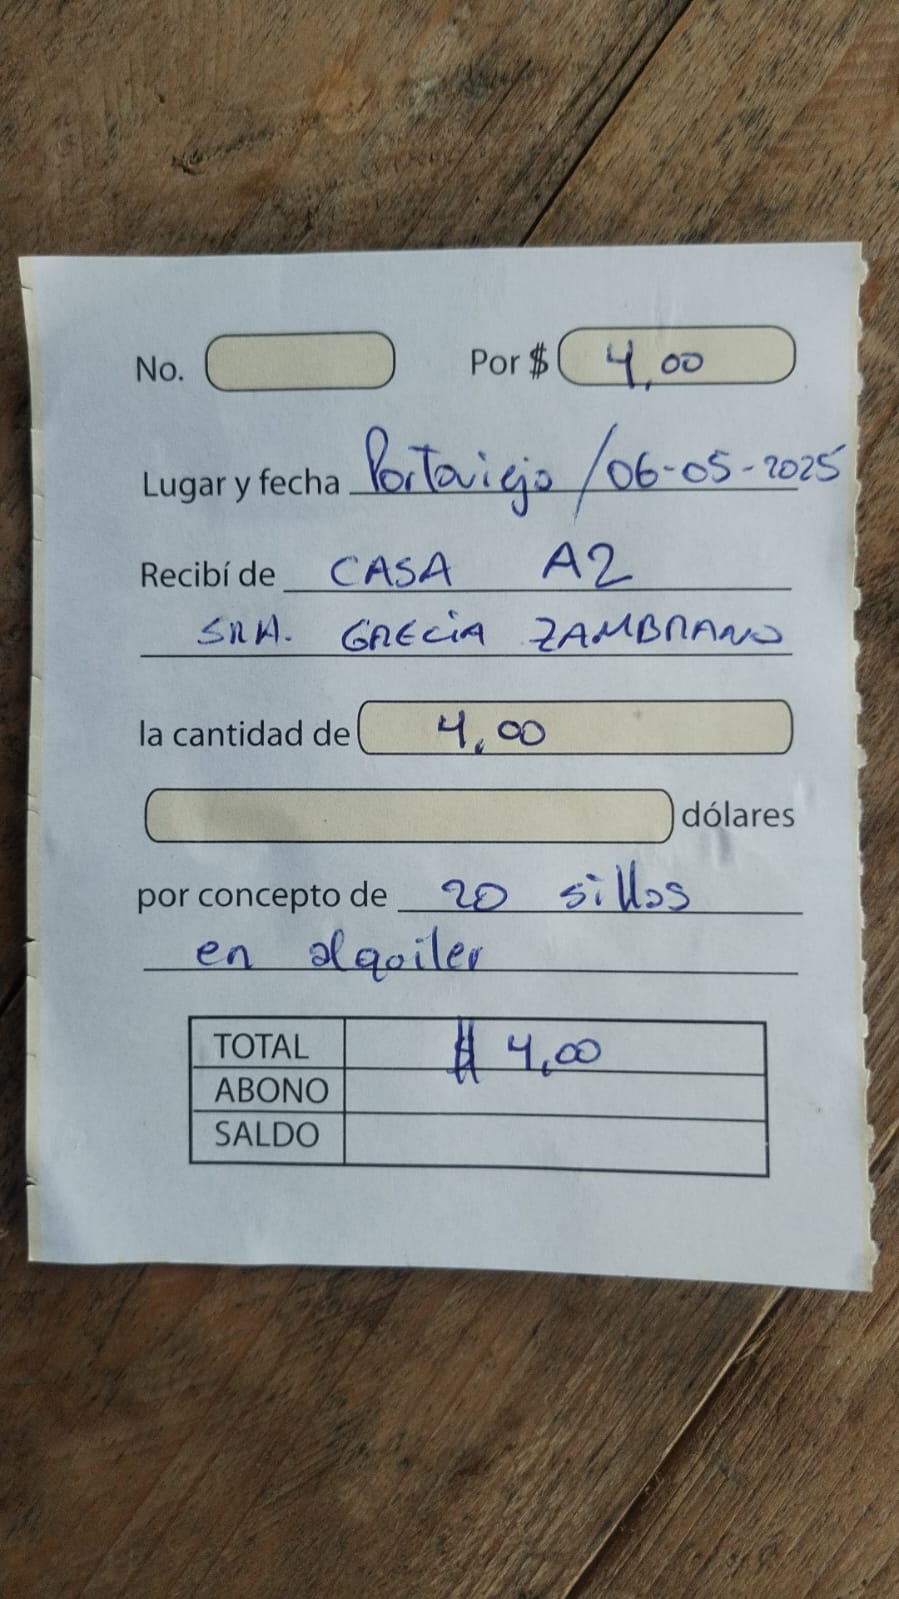 No. Por $ 4,00
Lugar y fecha Portoviejo / 06-05-2025
Recibí de CASA A2
SRA. GRECIA ZAMBRANO
la cantidad de 4,00
dólares
por concepto de 20 sillas
en alquiler
TOTAL $ 4,00
ABONO
SALDO